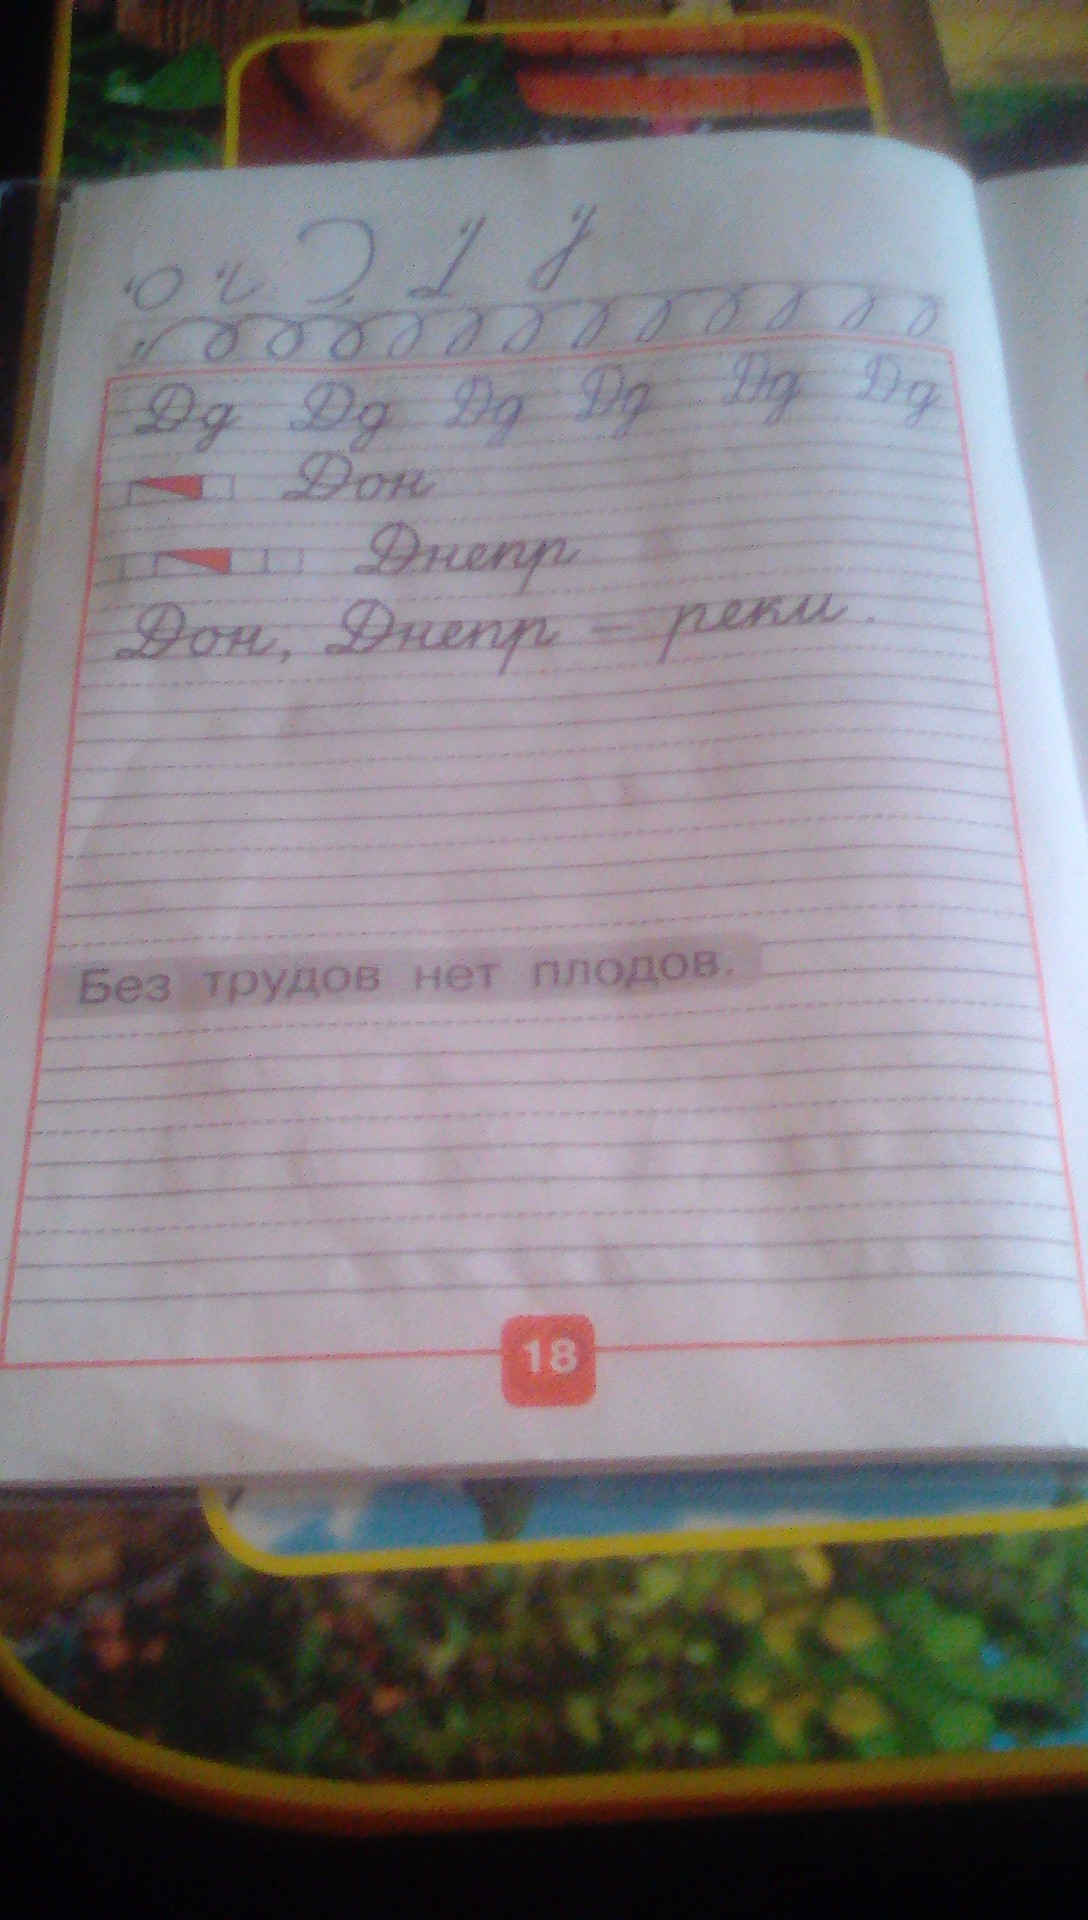 Дд Дд Дд Дд Дд Дд
Дон
Днепр
Дон, Днепр – реки.
Без трудов нет плодов.
18